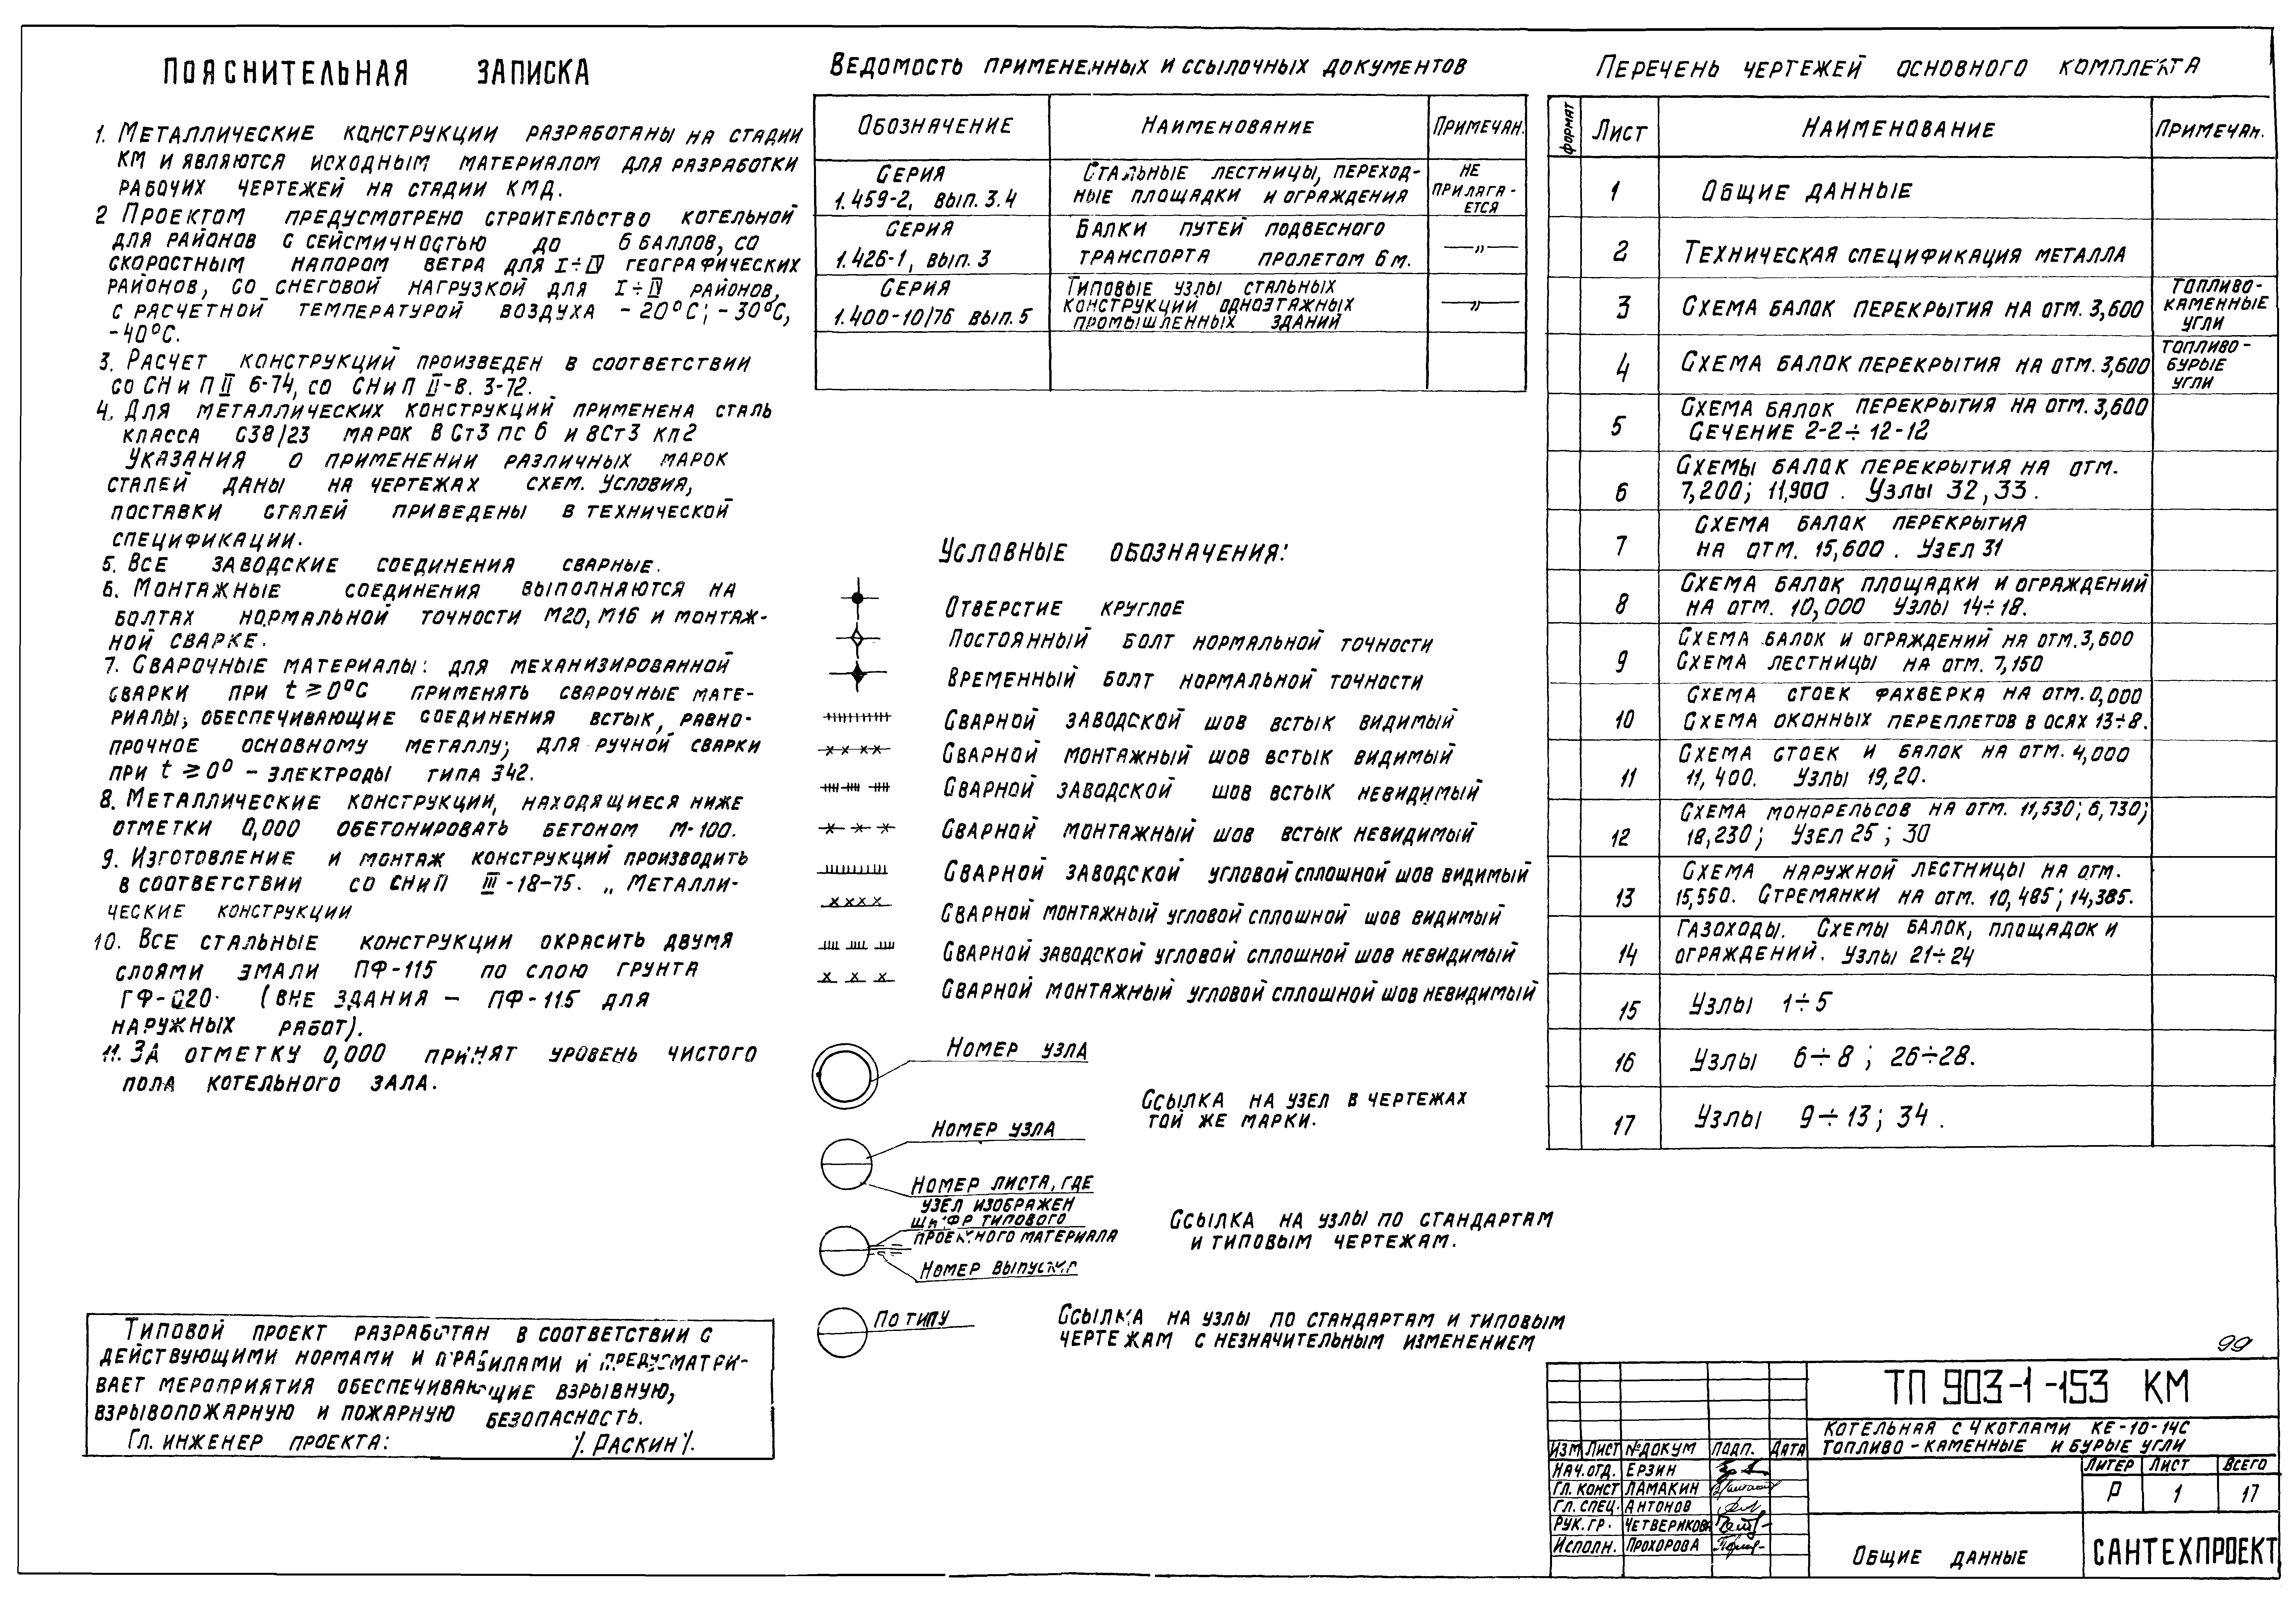 ПОЯСНИТЕЛЬНАЯ ЗАПИСКА
1. МЕТАЛЛИЧЕСКИЕ КОНСТРУКЦИИ РАЗРАБОТАНЫ НА СТАДИИ
КМ И ЯВЛЯЮТСЯ ИСХОДНЫМ МАТЕРИАЛОМ ДЛЯ РАЗРАБОТКИ
РАБОЧИХ ЧЕРТЕЖЕЙ НА СТАДИИ КМД.
2 ПРОЕКТОМ ПРЕДУСМОТРЕНО СТРОИТЕЛЬСТВО КОТЕЛЬНОЙ
ДЛЯ РАЙОНОВ С СЕЙСМИЧНОСТЬЮ ДО 6 БАЛЛОВ, СО
СКОРОСТНЫМ НАПОРОМ ВЕТРА ДЛЯ I÷IV ГЕОГРАФИЧЕСКИХ
РАЙОНОВ, СО СНЕГОВОЙ НАГРУЗКОЙ ДЛЯ I÷IV РАЙОНОВ,
С РАСЧЕТНОЙ ТЕМПЕРАТУРОЙ ВОЗДУХА -20°С; -30°С,
-40°С.
3. РАСЧЕТ КОНСТРУКЦИЙ ПРОИЗВЕДЕН В СООТВЕТСТВИИ
СО СН и П II 6-74, СО СНиП II-В. 3-72.
4. ДЛЯ МЕТАЛЛИЧЕСКИХ КОНСТРУКЦИЙ ПРИМЕНЕНА СТАЛЬ
КЛАССА С38/23 МАРОК В Ст3 ПС 6 И ВСт3 КП2
УКАЗАНИЯ О ПРИМЕНЕНИИ РАЗЛИЧНЫХ МАРОК
СТАЛЕЙ ДАНЫ НА ЧЕРТЕЖАХ СХЕМ. УСЛОВИЯ,
ПОСТАВКИ СТАЛЕЙ ПРИВЕДЕНЫ В ТЕХНИЧЕСКОЙ
СПЕЦИФИКАЦИИ.
5. ВСЕ ЗАВОДСКИЕ СОЕДИНЕНИЯ СВАРНЫЕ.
6. МОНТАЖНЫЕ СОЕДИНЕНИЯ ВЫПОЛНЯЮТСЯ НА
БОЛТАХ НОРМАЛЬНОЙ ТОЧНОСТИ М20, М16 И МОНТАЖ-
НОЙ СВАРКЕ.
7. СВАРОЧНЫЕ МАТЕРИАЛЫ: ДЛЯ МЕХАНИЗИРОВАННОЙ
СВАРКИ ПРИ t ≥ 0°С ПРИМЕНЯТЬ СВАРОЧНЫЕ МАТЕ-
РИАЛЫ, ОБЕСПЕЧИВАЮЩИЕ СОЕДИНЕНИЯ ВСТЫК, РАВНО-
ПРОЧНОЕ ОСНОВНОМУ МЕТАЛЛУ; ДЛЯ РУЧНОЙ СВАРКИ
ПРИ t ≥ 0° - ЭЛЕКТРОДЫ ТИПА Э42.
8. МЕТАЛЛИЧЕСКИЕ КОНСТРУКЦИИ, НАХОДЯЩИЕСЯ НИЖЕ
ОТМЕТКИ 0,000 ОБЕТОНИРОВАТЬ БЕТОНОМ М-100.
9. ИЗГОТОВЛЕНИЕ И МОНТАЖ КОНСТРУКЦИЙ ПРОИЗВОДИТЬ
В СООТВЕТСТВИИ СО СНиП III-18-75. „МЕТАЛЛИ-
ЧЕСКИЕ КОНСТРУКЦИИ
10. ВСЕ СТАЛЬНЫЕ КОНСТРУКЦИИ ОКРАСИТЬ ДВУМЯ
СЛОЯМИ ЭМАЛИ ПФ-115 ПО СЛОЮ ГРУНТА
ГФ-020. (ВНЕ ЗДАНИЯ - ПФ-115 ДЛЯ
НАРУЖНЫХ РАБОТ).
11. ЗА ОТМЕТКУ 0,000 ПРИНЯТ УРОВЕНЬ ЧИСТОГО
ПОЛА КОТЕЛЬНОГО ЗАЛА.
ТИПОВОЙ ПРОЕКТ РАЗРАБОТАН В СООТВЕТСТВИИ С
ДЕЙСТВУЮЩИМИ НОРМАМИ И ПРАВИЛАМИ И ПРЕДУСМАТРИ-
ВАЕТ МЕРОПРИЯТИЯ ОБЕСПЕЧИВАЮЩИЕ ВЗРЫВНУЮ,
ВЗРЫВОПОЖАРНУЮ И ПОЖАРНУЮ БЕЗОПАСНОСТЬ.
ГЛ. ИНЖЕНЕР ПРОЕКТА: /. РАСКИН /.
ВЕДОМОСТЬ ПРИМЕНЕННЫХ И ССЫЛОЧНЫХ ДОКУМЕНТОВ
ОБОЗНАЧЕНИЕ НАИМЕНОВАНИЕ ПРИМЕЧАН.
СЕРИЯ СТАЛЬНЫЕ ЛЕСТНИЦЫ, ПЕРЕХОД- НЕ
1.459-2, ВЫП. 3.4 НЫЕ ПЛОЩАДКИ И ОГРАЖДЕНИЯ ПРИЛАГА-
ЕТСЯ
СЕРИЯ БАЛКИ ПУТЕЙ ПОДВЕСНОГО
1.426-1, ВЫП. 3 ТРАНСПОРТА ПРОЛЕТОМ 6 М. —„—
СЕРИЯ ТИПОВЫЕ УЗЛЫ СТАЛЬНЫХ
1.400-10/76 ВЫП. 5 КОНСТРУКЦИЙ ОДНОЭТАЖНЫХ —„—
ПРОМЫШЛЕННЫХ ЗДАНИЙ
УСЛОВНЫЕ ОБОЗНАЧЕНИЯ:
ОТВЕРСТИЕ КРУГЛОЕ
ПОСТОЯННЫЙ БОЛТ НОРМАЛЬНОЙ ТОЧНОСТИ
ВРЕМЕННЫЙ БОЛТ НОРМАЛЬНОЙ ТОЧНОСТИ
СВАРНОЙ ЗАВОДСКОЙ ШОВ ВСТЫК ВИДИМЫЙ
СВАРНОЙ МОНТАЖНЫЙ ШОВ ВСТЫК ВИДИМЫЙ
СВАРНОЙ ЗАВОДСКОЙ ШОВ ВСТЫК НЕВИДИМЫЙ
СВАРНОЙ МОНТАЖНЫЙ ШОВ ВСТЫК НЕВИДИМЫЙ
СВАРНОЙ ЗАВОДСКОЙ УГЛОВОЙ СПЛОШНОЙ ШОВ ВИДИМЫЙ
СВАРНОЙ МОНТАЖНЫЙ УГЛОВОЙ СПЛОШНОЙ ШОВ ВИДИМЫЙ
СВАРНОЙ ЗАВОДСКОЙ УГЛОВОЙ СПЛОШНОЙ ШОВ НЕВИДИМЫЙ
СВАРНОЙ МОНТАЖНЫЙ УГЛОВОЙ СПЛОШНОЙ ШОВ НЕВИДИМЫЙ
НОМЕР УЗЛА
ССЫЛКА НА УЗЕЛ В ЧЕРТЕЖАХ
ТОЙ ЖЕ МАРКИ.
НОМЕР УЗЛА
НОМЕР ЛИСТА, ГДЕ
УЗЕЛ ИЗОБРАЖЕН
ШИФР ТИПОВОГО
ПРОЕКТНОГО МАТЕРИАЛА
НОМЕР ВЫПУСКА
ССЫЛКА НА УЗЛЫ ПО СТАНДАРТАМ
И ТИПОВЫМ ЧЕРТЕЖАМ.
ПО ТИПУ
ССЫЛКА НА УЗЛЫ ПО СТАНДАРТАМ И ТИПОВЫМ
ЧЕРТЕЖАМ С НЕЗНАЧИТЕЛЬНЫМ ИЗМЕНЕНИЕМ
ПЕРЕЧЕНЬ ЧЕРТЕЖЕЙ ОСНОВНОГО КОМПЛЕКТА
ФОРМАТ ЛИСТ НАИМЕНОВАНИЕ ПРИМЕЧАН.
1 ОБЩИЕ ДАННЫЕ
2 ТЕХНИЧЕСКАЯ СПЕЦИФИКАЦИЯ МЕТАЛЛА
3 СХЕМА БАЛОК ПЕРЕКРЫТИЯ НА ОТМ. 3,600 ТОПЛИВО-
КАМЕННЫЕ
УГЛИ
4 СХЕМА БАЛОК ПЕРЕКРЫТИЯ НА ОТМ. 3,600 ТОПЛИВО-
БУРЫЕ
УГЛИ
5 СХЕМА БАЛОК ПЕРЕКРЫТИЯ НА ОТМ. 3,600
СЕЧЕНИЕ 2-2÷12-12
6 СХЕМЫ БАЛОК ПЕРЕКРЫТИЯ НА ОТМ.
7,200; 11,900. УЗЛЫ 32, 33.
7 СХЕМА БАЛОК ПЕРЕКРЫТИЯ
НА ОТМ. 15,600. УЗЕЛ 31
8 СХЕМА БАЛОК ПЛОЩАДКИ И ОГРАЖДЕНИЙ
НА ОТМ. 10,000 УЗЛЫ 14÷18.
9 СХЕМА БАЛОК И ОГРАЖДЕНИЙ НА ОТМ. 3,600
СХЕМА ЛЕСТНИЦЫ НА ОТМ. 7,150
10 СХЕМА СТОЕК ФАХВЕРКА НА ОТМ. 0,000
СХЕМА ОКОННЫХ ПЕРЕПЛЕТОВ В ОСЯХ 13÷8.
11 СХЕМА СТОЕК И БАЛОК НА ОТМ. 4,000
11,400. УЗЛЫ 19, 20.
12 СХЕМА МОНОРЕЛЬСОВ НА ОТМ. 11,530; 6,730;
18,230; УЗЕЛ 25; 30
13 СХЕМА НАРУЖНОЙ ЛЕСТНИЦЫ НА ОТМ.
15,550. СТРЕМЯНКИ НА ОТМ. 10,485; 14,385.
14 ГАЗОХОДЫ. СХЕМЫ БАЛОК, ПЛОЩАДОК И
ОГРАЖДЕНИЙ. УЗЛЫ 21÷24
15 УЗЛЫ 1÷5
16 УЗЛЫ 6÷8; 26÷28.
17 УЗЛЫ 9÷13; 34.
99
ТП 903-1-153 КМ
КОТЕЛЬНАЯ С 4 КОТЛАМИ КЕ-10-14С
ТОПЛИВО - КАМЕННЫЕ И БУРЫЕ УГЛИ
ИЗМ ЛИСТ №ДОКУМ ПОДП. ДАТА
НАЧ. ОТД. ЕРЗИН
ГЛ. КОНСТ ЛАМАКИН
ГЛ. СПЕЦ. АНТОНОВ
РУК. ГР. ЧЕТВЕРИКОВА
ИСПОЛН. ПРОХОРОВА
ЛИТЕР ЛИСТ ВСЕГО
Р 1 17
ОБЩИЕ ДАННЫЕ
САНТЕХПРОЕКТ